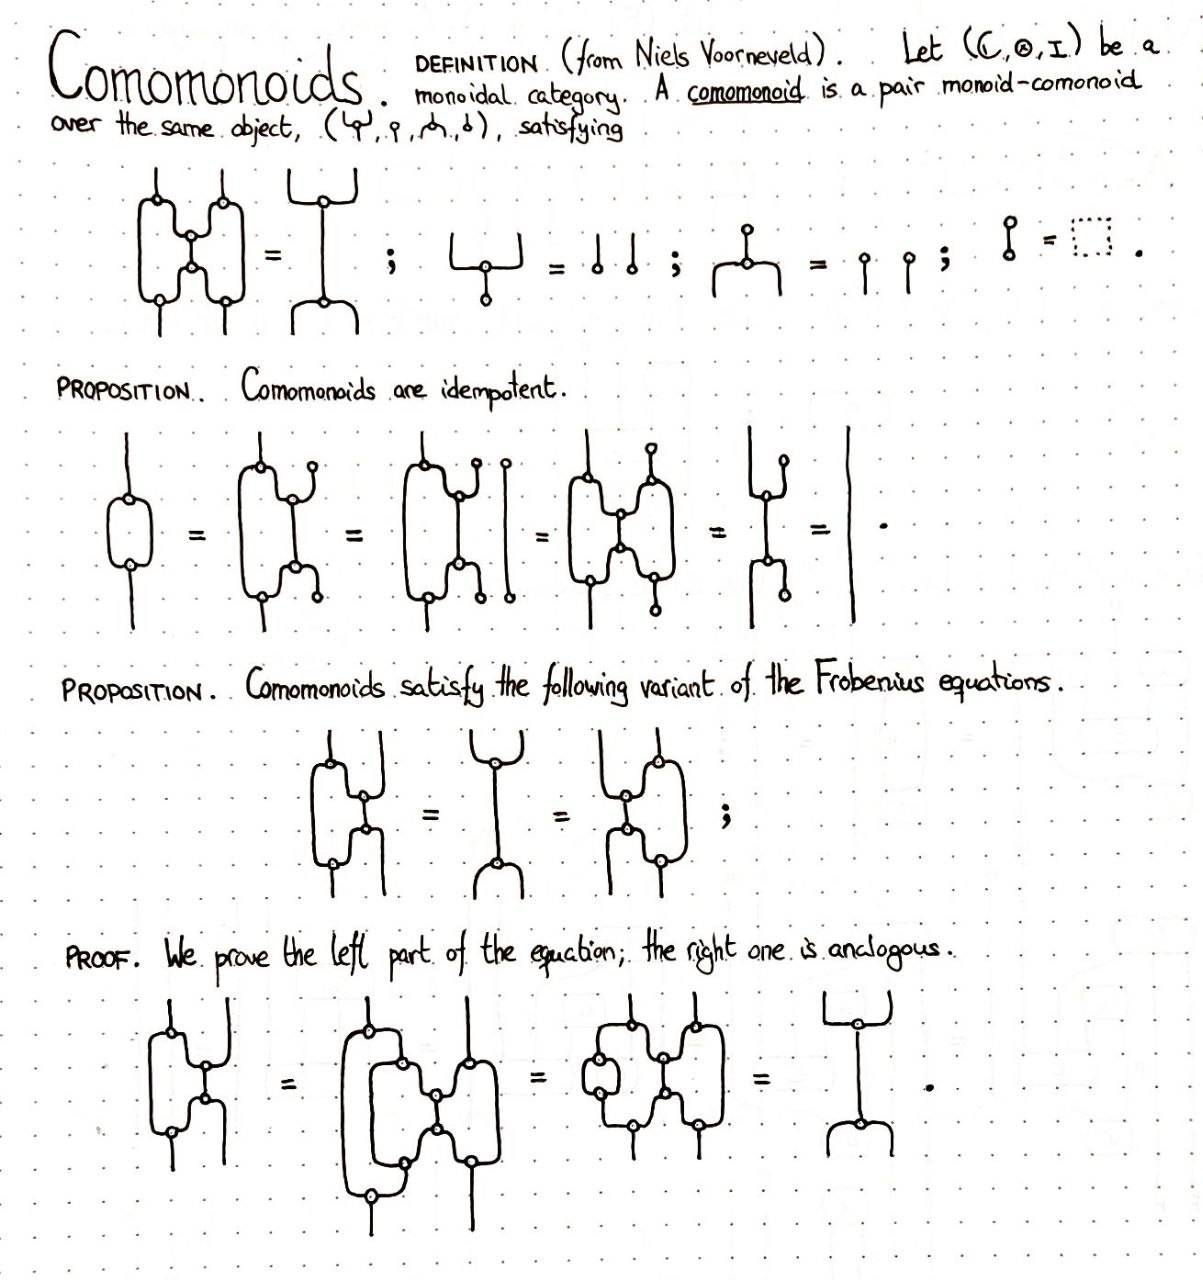 Comomonoids. DEFINITION (from Niels Voorneveld). Let (ℂ,⊗,I) be a
monoidal category. A comomonoid is a pair monoid-comonoid
over the same object, ( , , , ), satisfying
= ; = ; = ; = .
PROPOSITION. Comomonoids are idempotent.
= = = = = .
PROPOSITION. Comomonoids satisfy the following variant of the Frobenius equations.
= = ;
PROOF. We prove the left part of the equation; the right one is analogous.
= = = .